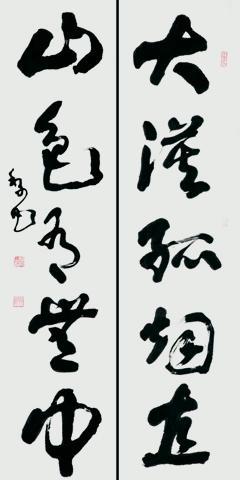 大漠孤烟直
山色有無中